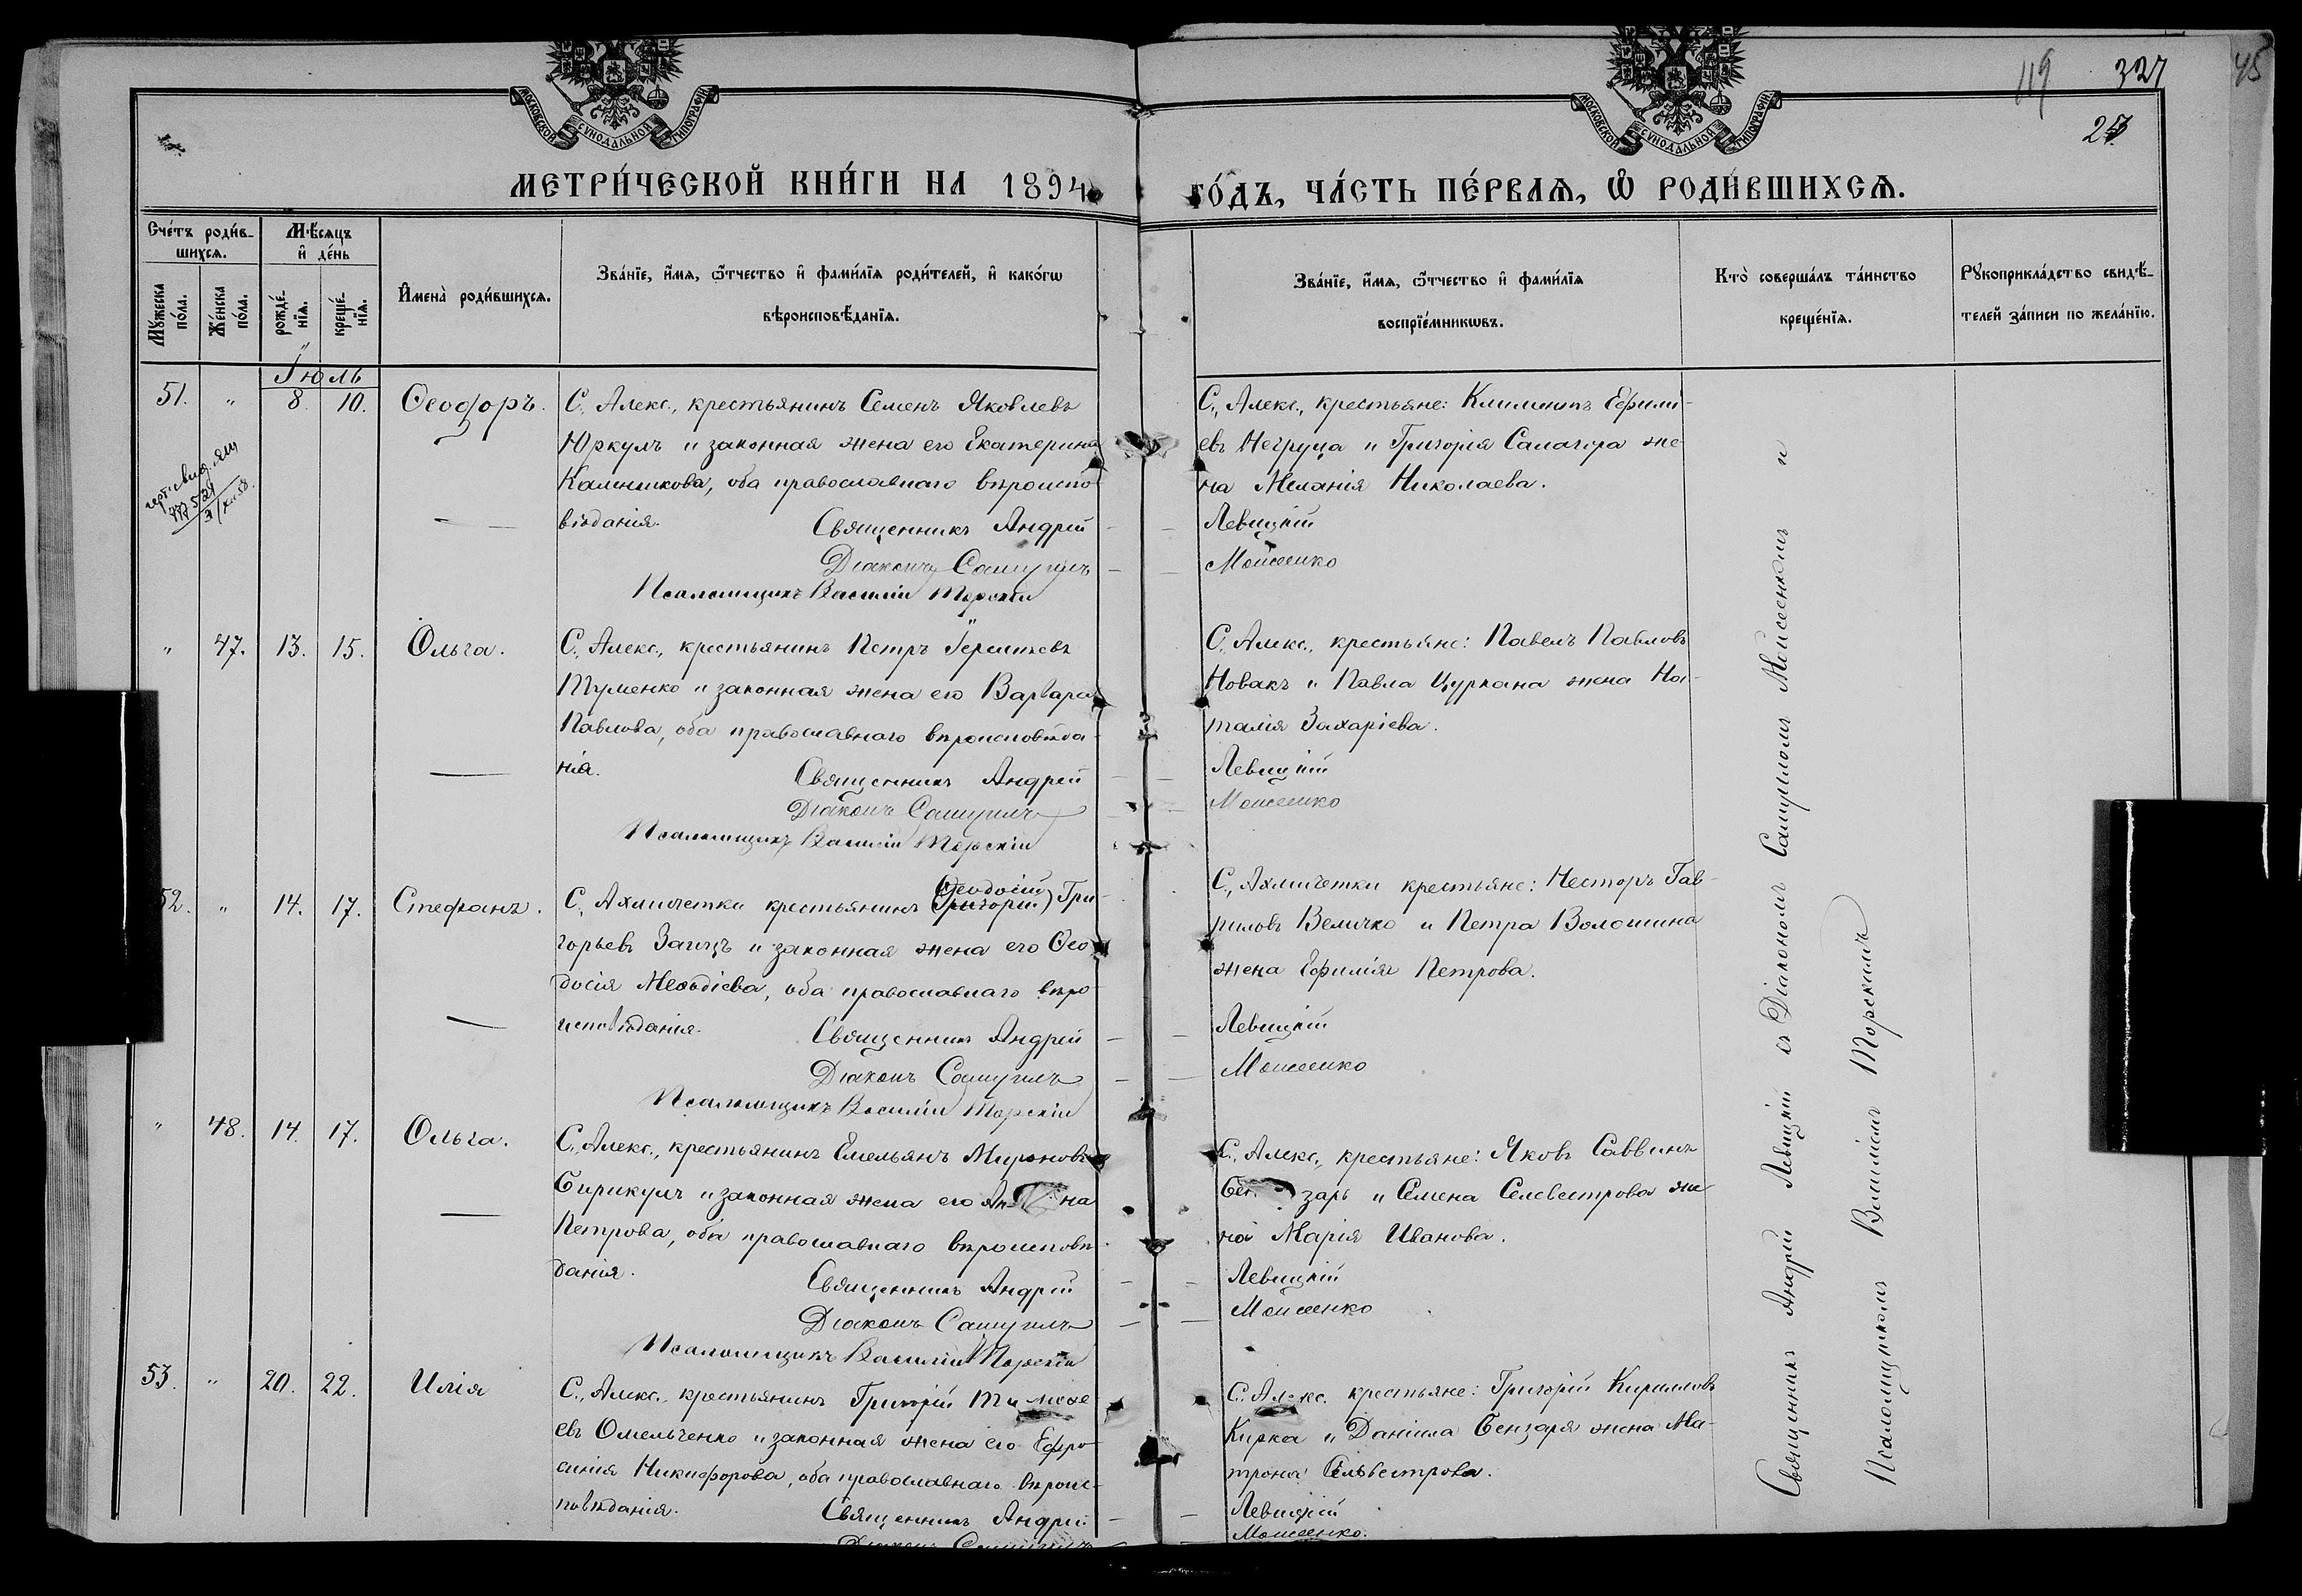 119 327 45
27
МОСКОВСКОЙ СУНОДАЛЬНОЙ ТИПОГРАФІИ.
МОСКОВСКОЙ СУНОДАЛЬНОЙ ТИПОГРАФІИ.
МЕТРИ́ЧЕСКОЙ КНИ́ГИ НА 1894
ГО́ДЪ, ЧА́СТЬ ПЕ́РВАЯ, Ѽ РОДИ́ВШИХСЯ.
Сче́тъ роди́в-
шихся.
Мꙋ́жеска по́ла.
Же́нска по́ла.
Мѣ́сяцъ
и҆ де́нь
рожде́-
нїя.
креще́-
нїя.
И҆мена̀ роди́вшихся.
Зва́нїе, и҆́мя, ѻ҆́тчество и҆ фами́лїя роди́телей, и҆ како́гѡ
вѣроисповѣ́данїя.
Зва́нїе, и҆́мя, ѻ҆́тчество и҆ фами́лїя
воспрїе́мникѡвъ.
Кто̀ соверша́лъ та́инство
креще́нїя.
Рꙋкоприкла́дство свидѣ́-
телей за́писи по жела́нїю.
Іюль
51. " 8. 10. Ѳеодоръ.
С., Алекс., крестьянинъ Семенъ Яковлевъ
Юркулъ и законная жена его Екатерина
Калинникова, оба православнаго вѣроиспо-
вѣданія.
Священникъ Андрей
Діаконъ Самуилъ
Псаломщикъ Василій Торскій
С., Алекс., крестьяне: Климентъ Ефимі-
евъ Негруца и Григорія Самагора же-
на Меланія Николаева.
Левицкій
Моисеенко
" 47. 13. 15. Ольга.
С., Алекс., крестьянинъ Петръ Терентьевъ
Туменко и законная жена его Варвара
Павлова, оба православнаго вѣроисповѣда-
нія.
Священникъ Андрей
Діаконъ Самуилъ
Псаломщикъ Василій Торскій
С., Алекс., крестьяне: Павелъ Павловъ
Новакъ и Павла Цуркана жена На-
талія Захаріева.
Левицкій
Моисеенко
52. " 14. 17. Стефанъ.
Ѳеодосій
С., Ахмечетки крестьянинъ (Григорій) Гри-
горьевъ Заицъ и законная жена его Ѳео-
досія Меѳодіева, оба православнаго вѣро-
исповѣданія.
Священникъ Андрей
Діаконъ Самуилъ
Псаломщикъ Василій Торскій
С., Ахмечетки крестьяне: Несторъ Гав-
риловъ Величко и Петра Волошина
жена Ефимія Петрова.
Левицкій
Моисеенко
" 48. 14. 17. Ольга.
С., Алекс., крестьянинъ Емельянъ Мироновъ
Бирикулъ и законная жена его на
Петрова, оба православнаго вѣроисповѣ-
данія.
Священникъ Андрей
Діаконъ Самуилъ
Псаломщикъ Василій Торскій
С., Алекс., крестьяне: Яковъ Саввинъ
зарь и Семена Селевестрова же-
на Марія Иванова.
Левицкій
Моисеенко
53. " 20. 22. Илія
С., Алекс., крестьянинъ Григорій Тимоѳе-
евъ Омельченко и законная жена его Ефро-
синія Никифорова, оба православнаго вѣроис-
повѣданія.
Священникъ Андрей
Діаконъ Самуилъ
С. Алекс. крестьяне: Григорій Кириловъ
Кирка и Даніила Бензаря жена Ма-
трона Сельвестрова.
Левицкій
Моисеенко.
Священникъ Андрей Левицкій съ Діакономъ Самуиломъ Моисеенкомъ и
Псаломщикомъ Василіемъ Торскимъ